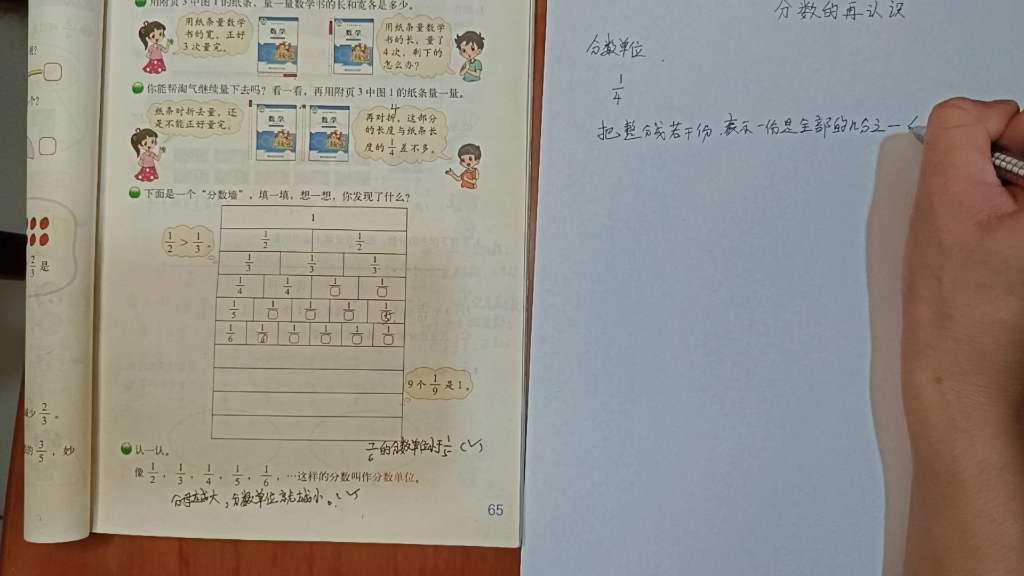 用附页3中图1的纸条，量一量数学书的长和宽各是多少。
用纸条量数学
书的宽，正好
3次量完。
数学
数学
用纸条量数学
书的长，量了
4次，剩下的
怎么办？
你能帮淘气继续量下去吗？看一看，再用附页3中图1的纸条量一量。
纸条对折去量，还
是不能正好量完。
数学
数学
4
再对折，这部分
的长度与纸条长
度的1/4差不多。
下面是一个“分数墙”，填一填，想一想，你发现了什么？
1/2 > 1/3。
1
1/2 1/2
1/3 1/3 1/3
1/4 1/4 1/□ 1/□
1/5 1/□ 1/□ 1/□ 1/5
1/6 1/6 1/□ 1/□ 1/□ 1/□
9个1/9是1。
的分数单位小于1/5 (✓)
认一认。
像1/2，1/3，1/4，1/5，1/6，…这样的分数叫作分数单位。
分母越大，分数单位就越小。(✓
65
2/3 是
2/3。
3/5，妙
分数的再认识
分数单位
1/4
把整分成若干份 表示一份是全部的几分之一